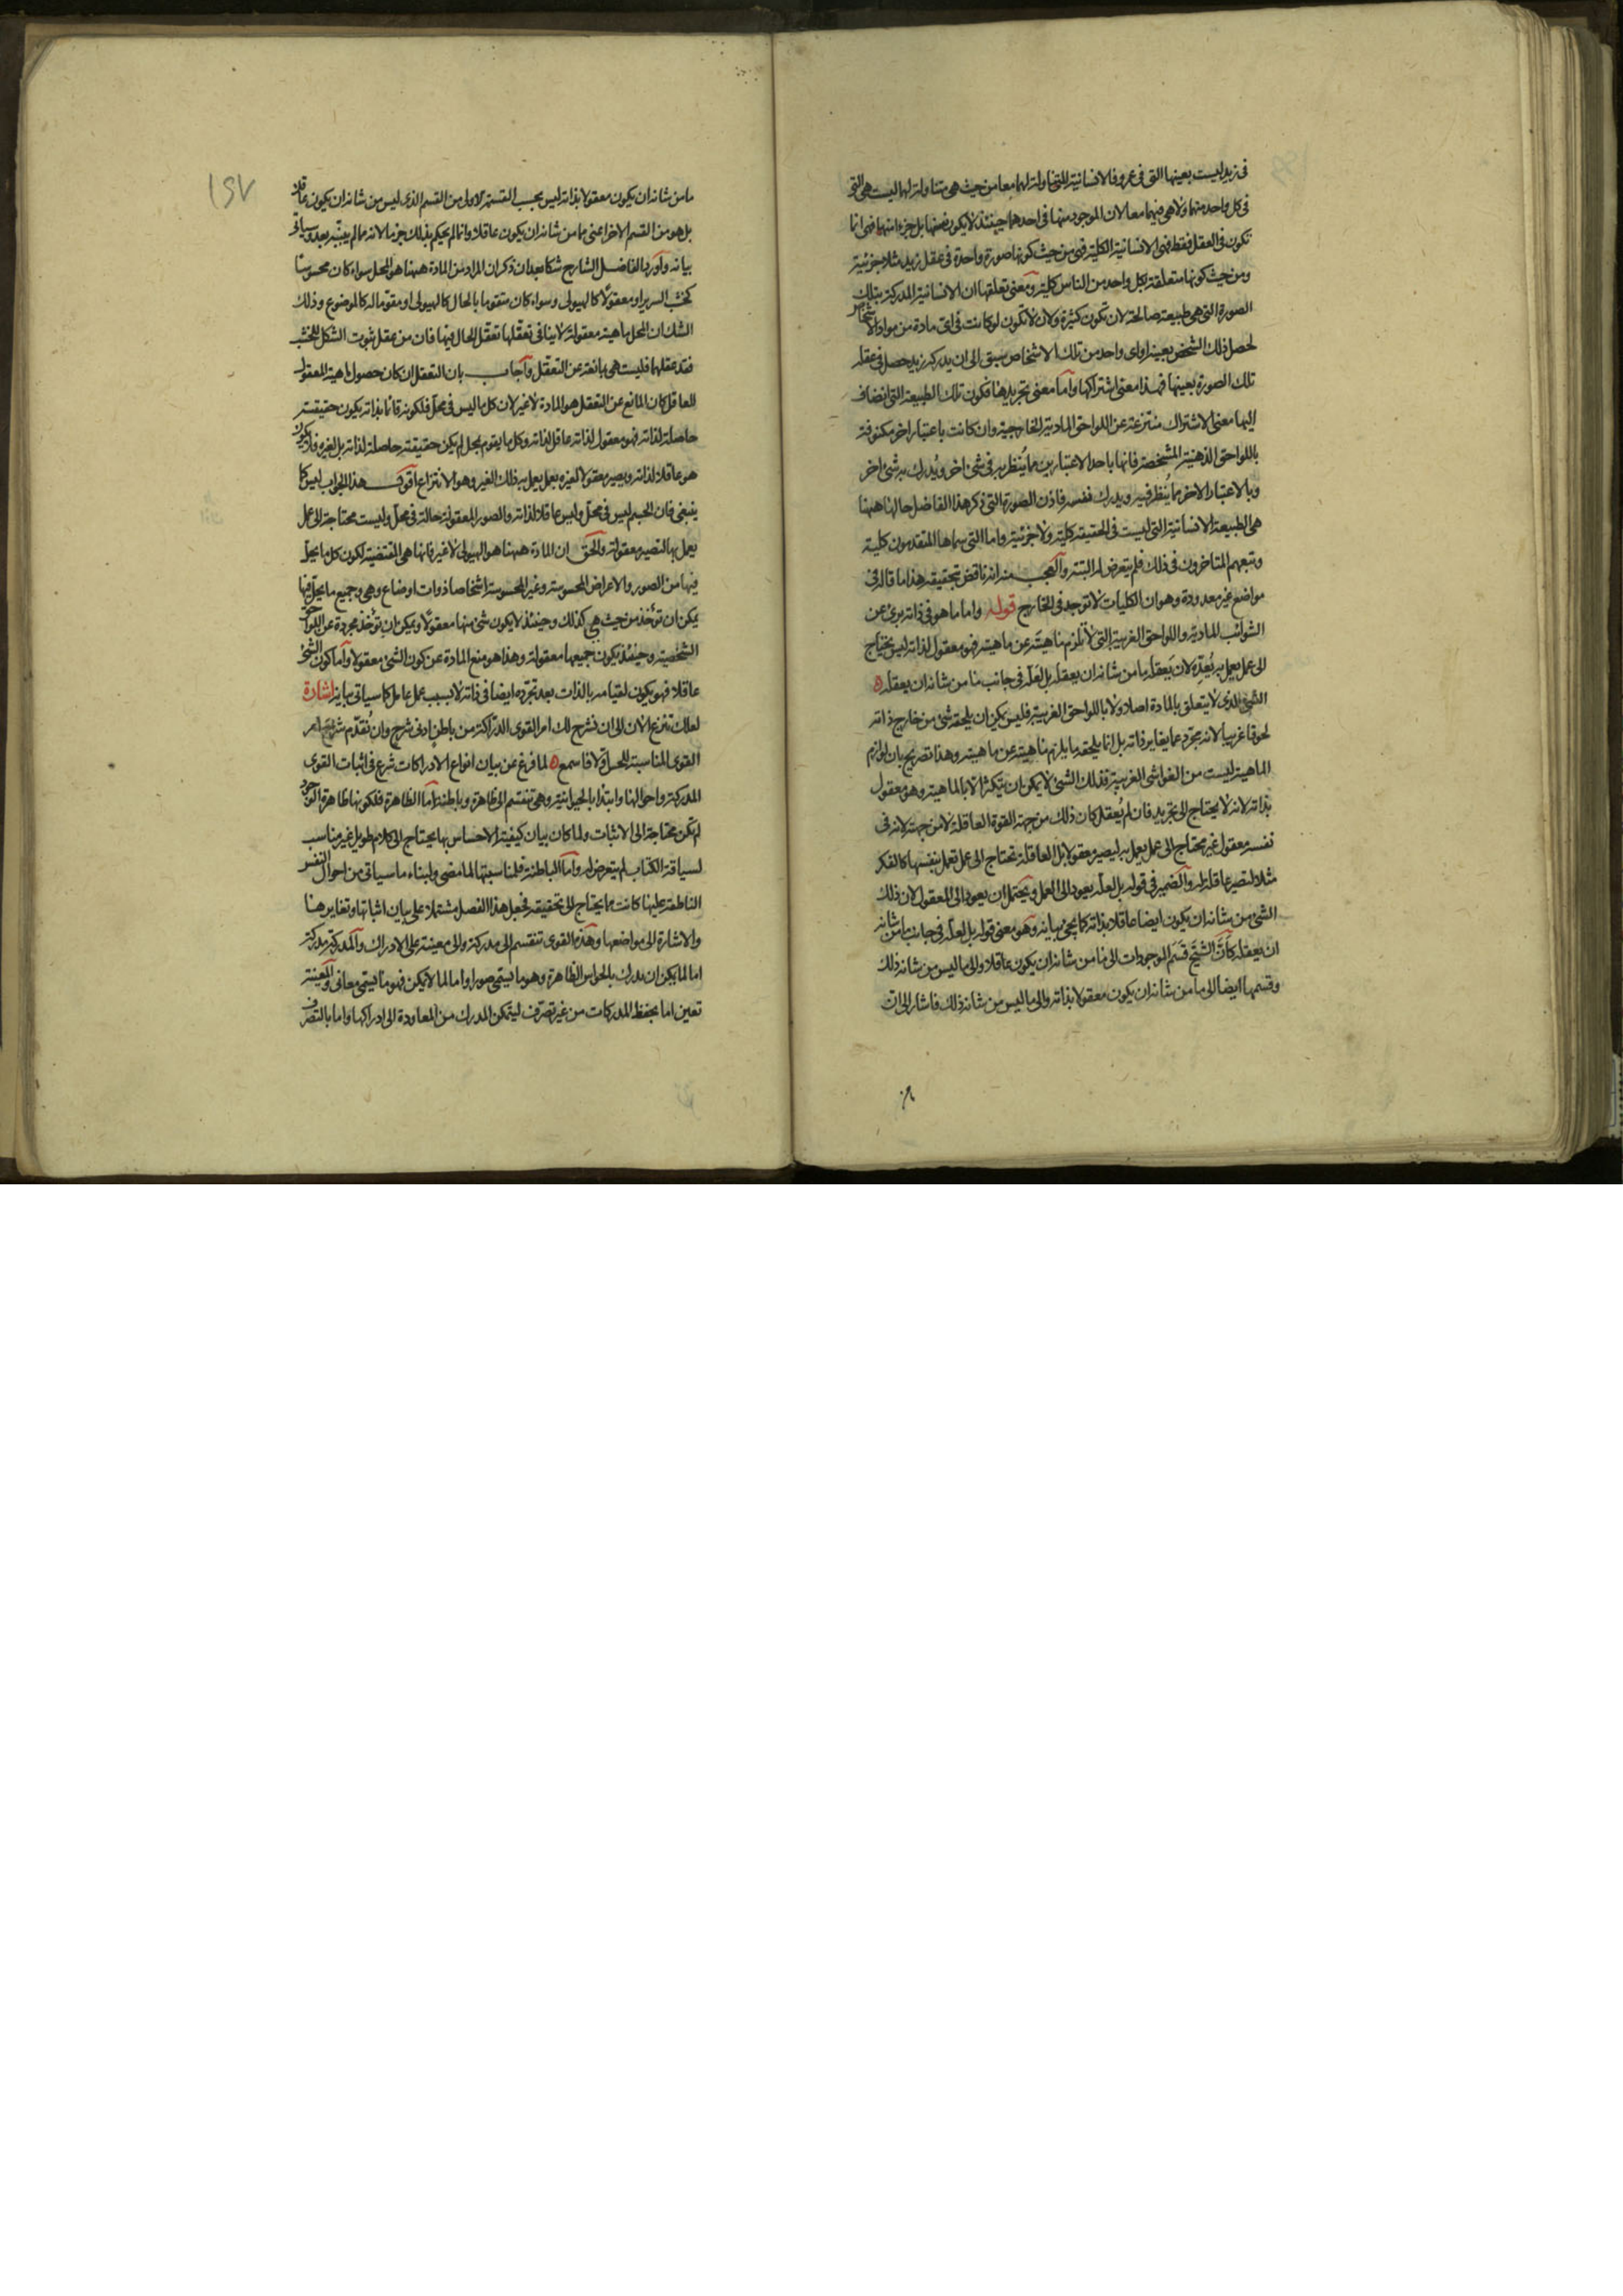 فى زيد ليست بعينها التى فى عمرو فالانسانية المتناولة لهما معا من حيث هى متناولة لهما ليست هى التى
فى كل واحد منهما ولا هى فيهما معا لان الموجود منها فى احدهما حينئذ لا يكون نفسها بل جزءا منها فهى انما
تكون فى العقل فقط فهى الانسانية الكلية فهى من حيث كونها صورة واحدة فى عقل زيد مثلا جزئية
ومن حيث كونها متعلقة بكل واحد من الناس كلية ومعنى تعلقها ان الانسانية المدركة بتلك
الصورة التى هى طبيعة صالحة لان تكون كثيرة ولان لا تكون لو كانت فى اى مادة من مواد الاشخاص
لحصل ذلك الشخص بعينه او اى واحد من تلك الاشخاص سبق الى ان يدركه زيد حصل فى عقله
تلك الصورة بعينها فهذا معنى اشتراكها واما معنى تجريدها فكون تلك الطبيعة التى انضاف
اليها معنى الاشتراك منتزعة عن اللواحق المادية الخارجية وان كانت باعتبار اخر مكنوفة
باللواحق الذهنية المشخصة فانها باحد الاعتبارين مما يُنظر به فى شئ اخر ويُدرك به شئ اخر
وبالاعتبار الاخر مما يُنظر فيه ويدرك نفسه فاذن الصورة التى ذكر هذا الفاضل حالها ههنا
هى الطبيعة الانسانية التى ليست فى الحقيقة كلية ولا جزئية واما التى سماها المتقدمون كلية
وتبعهم المتاخرون فى ذلك فلم يتعرض لها البتة والعجب منه انه ناقض تحقيقه هذا ما قاله فى
مواضع غير معدودة وهو ان الكليات لا توجد فى الخارج قوله واما ما هو فى ذاته برئ عن
الشوائب المادية واللواحق الغريبة التى لا تلزم ماهيته عن ماهيته فهو معقول لذاته ليس يحتاج
الى عمل يعمل به يُعِدّه لان يَعقله ما من شانه ان يعقله بل لعله فى جانب ما من شانه ان يعقله ه
الشئ الذى لا يتعلق بالمادة اصلا ولا باللواحق الغريبة فليس يمكن ان يلحقه شئ من خارج ذاته
لحوقا غريبا لانه مجرد عما يغاير ذاته بل انما يلحقه ما يلزم ماهيته عن ماهيته وهذا تصريح بان لوازم
الماهية ليست من الغواشى الغريبة فذلك الشئ لا يمكن ان يتكثر الا بالماهية وهو معقول
بذاته لانه لا يحتاج الى تجريد فان لم يُعقل كان ذلك من جهة القوة العاقلة لا من جهته لانه فى
نفسه معقول غير محتاج الى عمل يعمل به ليصير معقولا بل العاقلة تحتاج الى عمل تعمل بنفسها كالفكر
مثلا لتصير عاقلة له والضمير فى قوله بل لعله يعود الى العمل ويحتمل ان يعود الى المعقول لان ذلك
الشئ من شانه ان يكون ايضا عاقلا بذاته كما يجئ بيانه وهو معنى قوله بل لعله فى جانب ما من شانه
ان يعقله كأنّ الشيخ قسم الموجودات الى ما من شانه ان يكون عاقلا والى ما ليس من شانه ذلك
وقسمها ايضا الى ما من شانه ان يكون معقولا بذاته والى ما ليس من شانه ذلك فاشار الى ان
١٢٧
ما من شانه ان يكون معقولا بذاته ليس بحسب القسمة الاولى من القسم الذى ليس من شانه ان يكون عاقلا
بل هو من القسم الاخر اعنى ما من شانه ان يكون عاقلا وانما لم يحكم بذلك جزما لانه مما لم يبيّنه بعد وسياتى
بيانه واورد الفاضل الشارح شكا بعد ان ذكر ان المراد من المادة ههنا هو المحل سواء كان محسوسا
كخشب السرير او معقولا كالهيولى وسواء كان متقوما بالحال كالهيولى او مقوما له كالموضوع وذلك
الشك ان المحل ماهية معقولة لا ينافى تعقّلها تعقّل الحال فيها فان من عقل ثبوت الشكل للخشب
فقد عقلهما فليست هى مانعة عن التعقل واجاب بان التعقل ان كان حصول ماهية المعقول
للعاقل كان المانع عن التعقل هو المادة لا غير لان كل ما ليس فى محل فلكونه قائما بذاته يكون حقيقته
حاصلة لذاته فهو معقول لذاته عاقل لذاته وكل ما يقوم بمحل لم يكن حقيقته حاصلة لذاته بل لغيره فلا يكون
هو عاقلا لذاته ويصير معقولا لغيره بعمل يعمل به ذلك الغير وهو الانتزاع اقول هذا الجواب ليس كما
ينبغى فان الجسم ليس فى محل وليس عاقلا لذاته والصور المعقولة حالة فى محل وليست محتاجة الى عمل
يعمل بها لتصير معقولة والحق ان المادة ههنا هو الهيولى لا غير فانها هى المقتضية لكون كل ما يحل
فيها من الصور والاعراض المحسوسة وغير المحسوسة اشخاصا ذوات اوضاع وهى وجميع ما يحل فيها
يمكن ان تؤخذ من حيث هى كذلك وحينئذ لا يكون شئ منها معقولا ويمكن ان تؤخذ مجردة عن اللواحق
الشخصية وحينئذ يكون جميعها معقولة وهذا هو منع المادة عن كون الشئ معقولا واما كون الشئ
عاقلا فهو يكون لقيامه بالذات بعد تجرده ايضا فى ذاته لا بسبب عمل عامل كما سياتى بيانه اشارة
لعلك تنزع الان الى ان نشرح لك امر القوى الدراكة من باطن ادنى شرح وان نُقدّم شرح امر
القوى المناسبة للحس اولا فاسمع ه لما فرغ عن بيان انواع الادراكات شرع فى اثبات القوى
المدركة واحوالها وابتدا بالحيوانية وهى تنقسم الى ظاهرة وباطنة اما الظاهرة فلكونها ظاهرة الوجود
لم تكن محتاجة الى الاثبات ولما كان بيان كيفية الاحساس بها يحتاج الى كلام طويل غير مناسب
لسياقة الكتاب لم يتعرض له واما الباطنة فلمناسبتها لما مضى ولبناء ما سياتى من احوال النفس
الناطقة عليها كانت مما يحتاج الى تحقيقه فجعل هذا الفصل مشتملا على بيان اثباتها وتغايرها
والاشارة الى مواضعها وهذه القوى تنقسم الى مدركة والى معينة على الادراك والمدركة مدركة
اما لما يمكن ان يدرك بالحواس الظاهرة وهو ما يسمى صورا واما لما لا يمكن فهو ما يسمى معانى والمعينة
تعين اما بحفظ المدركات من غير تصرف ليتمكن المدرك من المعاودة الى ادراكها واما بالتصرف